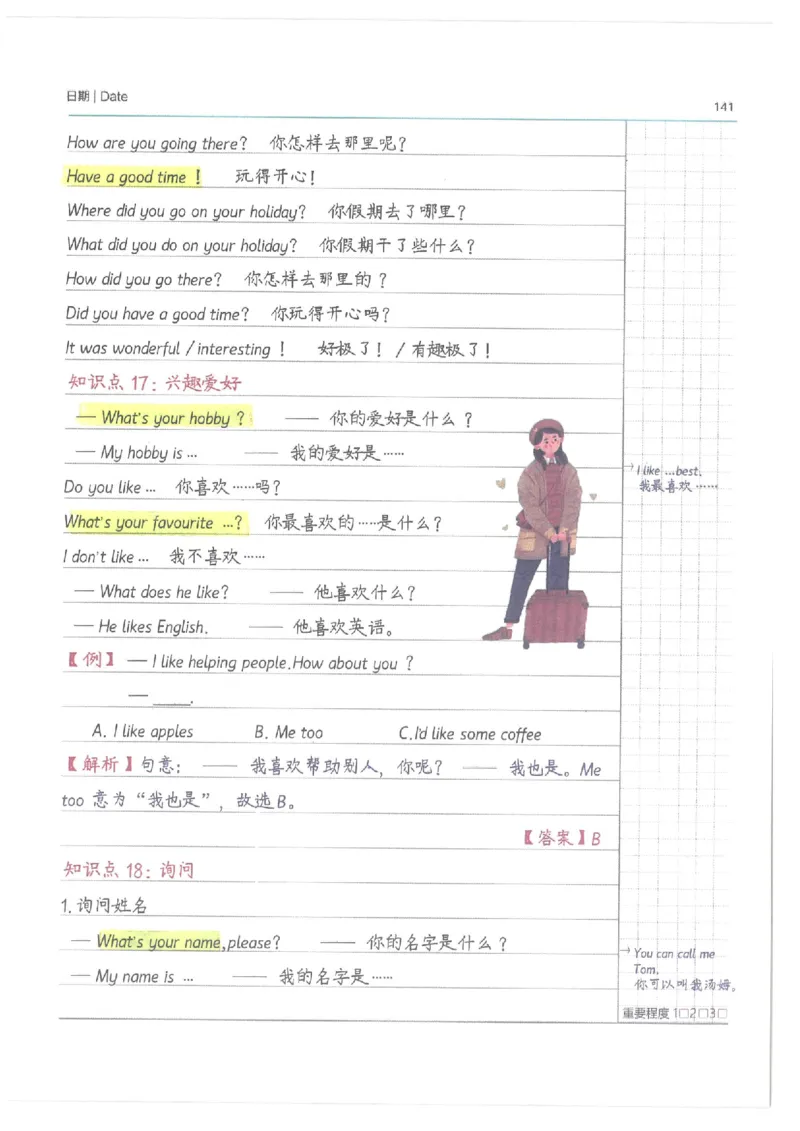 日期 | Date
141
How are you going there? 你怎样去那里呢?
Have a good time! 玩得开心!
Where did you go on your holiday? 你假期去了哪里?
What did you do on your holiday? 你假期干了些什么?
How did you go there? 你怎样去那里的?
Did you have a good time? 你玩得开心吗?
It was wonderful / interesting! 好极了! / 有趣极了!
知识点 17: 兴趣爱好
— What's your hobby? —— 你的爱好是什么?
— My hobby is … —— 我的爱好是……
→ I like …best.
我最喜欢……
Do you like … 你喜欢……吗?
What's your favourite …? 你最喜欢的……是什么?
I don't like … 我不喜欢……
— What does he like? —— 他喜欢什么?
— He likes English. —— 他喜欢英语。
【例】 — I like helping people.How about you?
— _____.
A. I like apples B. Me too C.I'd like some coffee
【解析】句意: —— 我喜欢帮助别人, 你呢? —— 我也是。Me
too 意为“我也是”, 故选B。
【答案】B
知识点 18: 询问
1. 询问姓名
— What's your name,please? —— 你的名字是什么?
— My name is … —— 我的名字是……
→ You can call me
Tom.
你可以叫我汤姆。
重要程度 1□2□3□